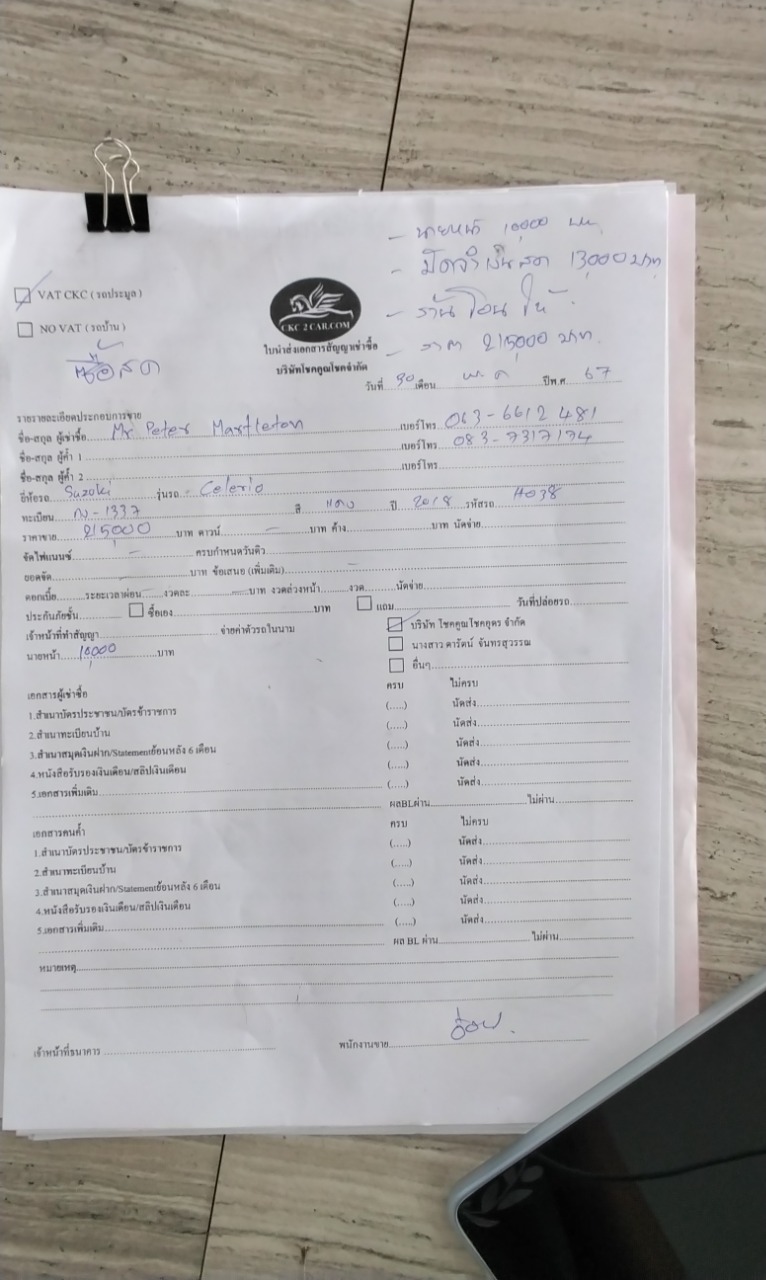 - นายหน้า 10,000 บาท
- มัดจำเงินสด 13,000 บาท
- ร้านโอนให้
- ราคา 215,000 บาท.
VAT CKC ( รถประมูล )
NO VAT ( รถบ้าน )
ซื้อสด
CKC 2 CAR.COM
ใบนำส่งเอกสารสัญญาเช่าซื้อ
บริษัทโชคคูณโชคจำกัด
วันที่ 30 เดือน พ.ค ปีพ.ศ. 67
รายรายละเอียดประกอบการขาย
ชื่อ-สกุล ผู้เช่าซื้อ Mr. Peter เบอร์โทร 063-6612 481
ชื่อ-สกุล ผู้ค้ำ 1 เบอร์โทร 083-7317194
ชื่อ-สกุล ผู้ค้ำ 2 เบอร์โทร
ยี่ห้อรถ Suzuki รุ่นรถ - Celerio
ทะเบียน -1337 สี แดง ปี 2018 รหัสรถ H038
ราคาขาย 215,000 บาท ดาวน์ - บาท ค้าง บาท นัดจ่าย
จัดไฟแนนซ์ - ครบกำหนดวันคิว
ยอดจัด บาท ข้อเสนอ (เพิ่มเติม)
ดอกเบี้ย ระยะเวลาผ่อน งวดละ บาท งวดล่วงหน้า งวด นัดจ่าย
ประกันภัยชั้น ซื้อเอง บาท แถม วันที่ปล่อยรถ
เจ้าหน้าที่ทำสัญญา จ่ายค่าตัวรถในนาม บริษัท โชคคูณโชคอุดร จำกัด
นายหน้า 10,000 บาท นางสาว ดารัตน์ จันทรสุวรรณ
อื่นๆ
เอกสารผู้เช่าซื้อ ครบ ไม่ครบ
1.สำเนาบัตรประชาชน/บัตรข้าราชการ (.....) นัดส่ง
2.สำเนาทะเบียนบ้าน (.....) นัดส่ง
3.สำเนาสมุดเงินฝาก/Statementย้อนหลัง 6 เดือน (.....) นัดส่ง
4.หนังสือรับรองเงินเดือน/สลิปเงินเดือน (.....) นัดส่ง
5.เอกสารเพิ่มเติม (.....) นัดส่ง
ผลBLผ่าน ไม่ผ่าน
เอกสารคนค้ำ ครบ ไม่ครบ
1.สำเนาบัตรประชาชน/บัตรข้าราชการ (.....) นัดส่ง
2.สำเนาทะเบียนบ้าน (.....) นัดส่ง
3.สำเนาสมุดเงินฝาก/Statementย้อนหลัง 6 เดือน (.....) นัดส่ง
4.หนังสือรับรองเงินเดือน/สลิปเงินเดือน (.....) นัดส่ง
5.เอกสารเพิ่มเติม (.....) นัดส่ง
ผล BL ผ่าน ไม่ผ่าน
หมายเหตุ
เจ้าหน้าที่ธนาคาร พนักงานขาย